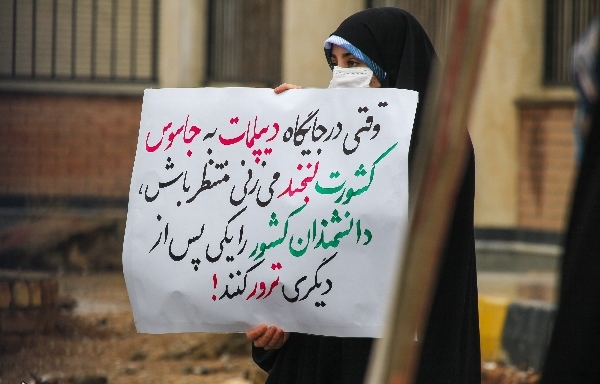 وقتی در جایگاه دیپلمات به جاسوس
کشورت لبخند می زنی منتظر باش،
دانشمندان کشور را یکی پس از
دیگری ترور کنند!